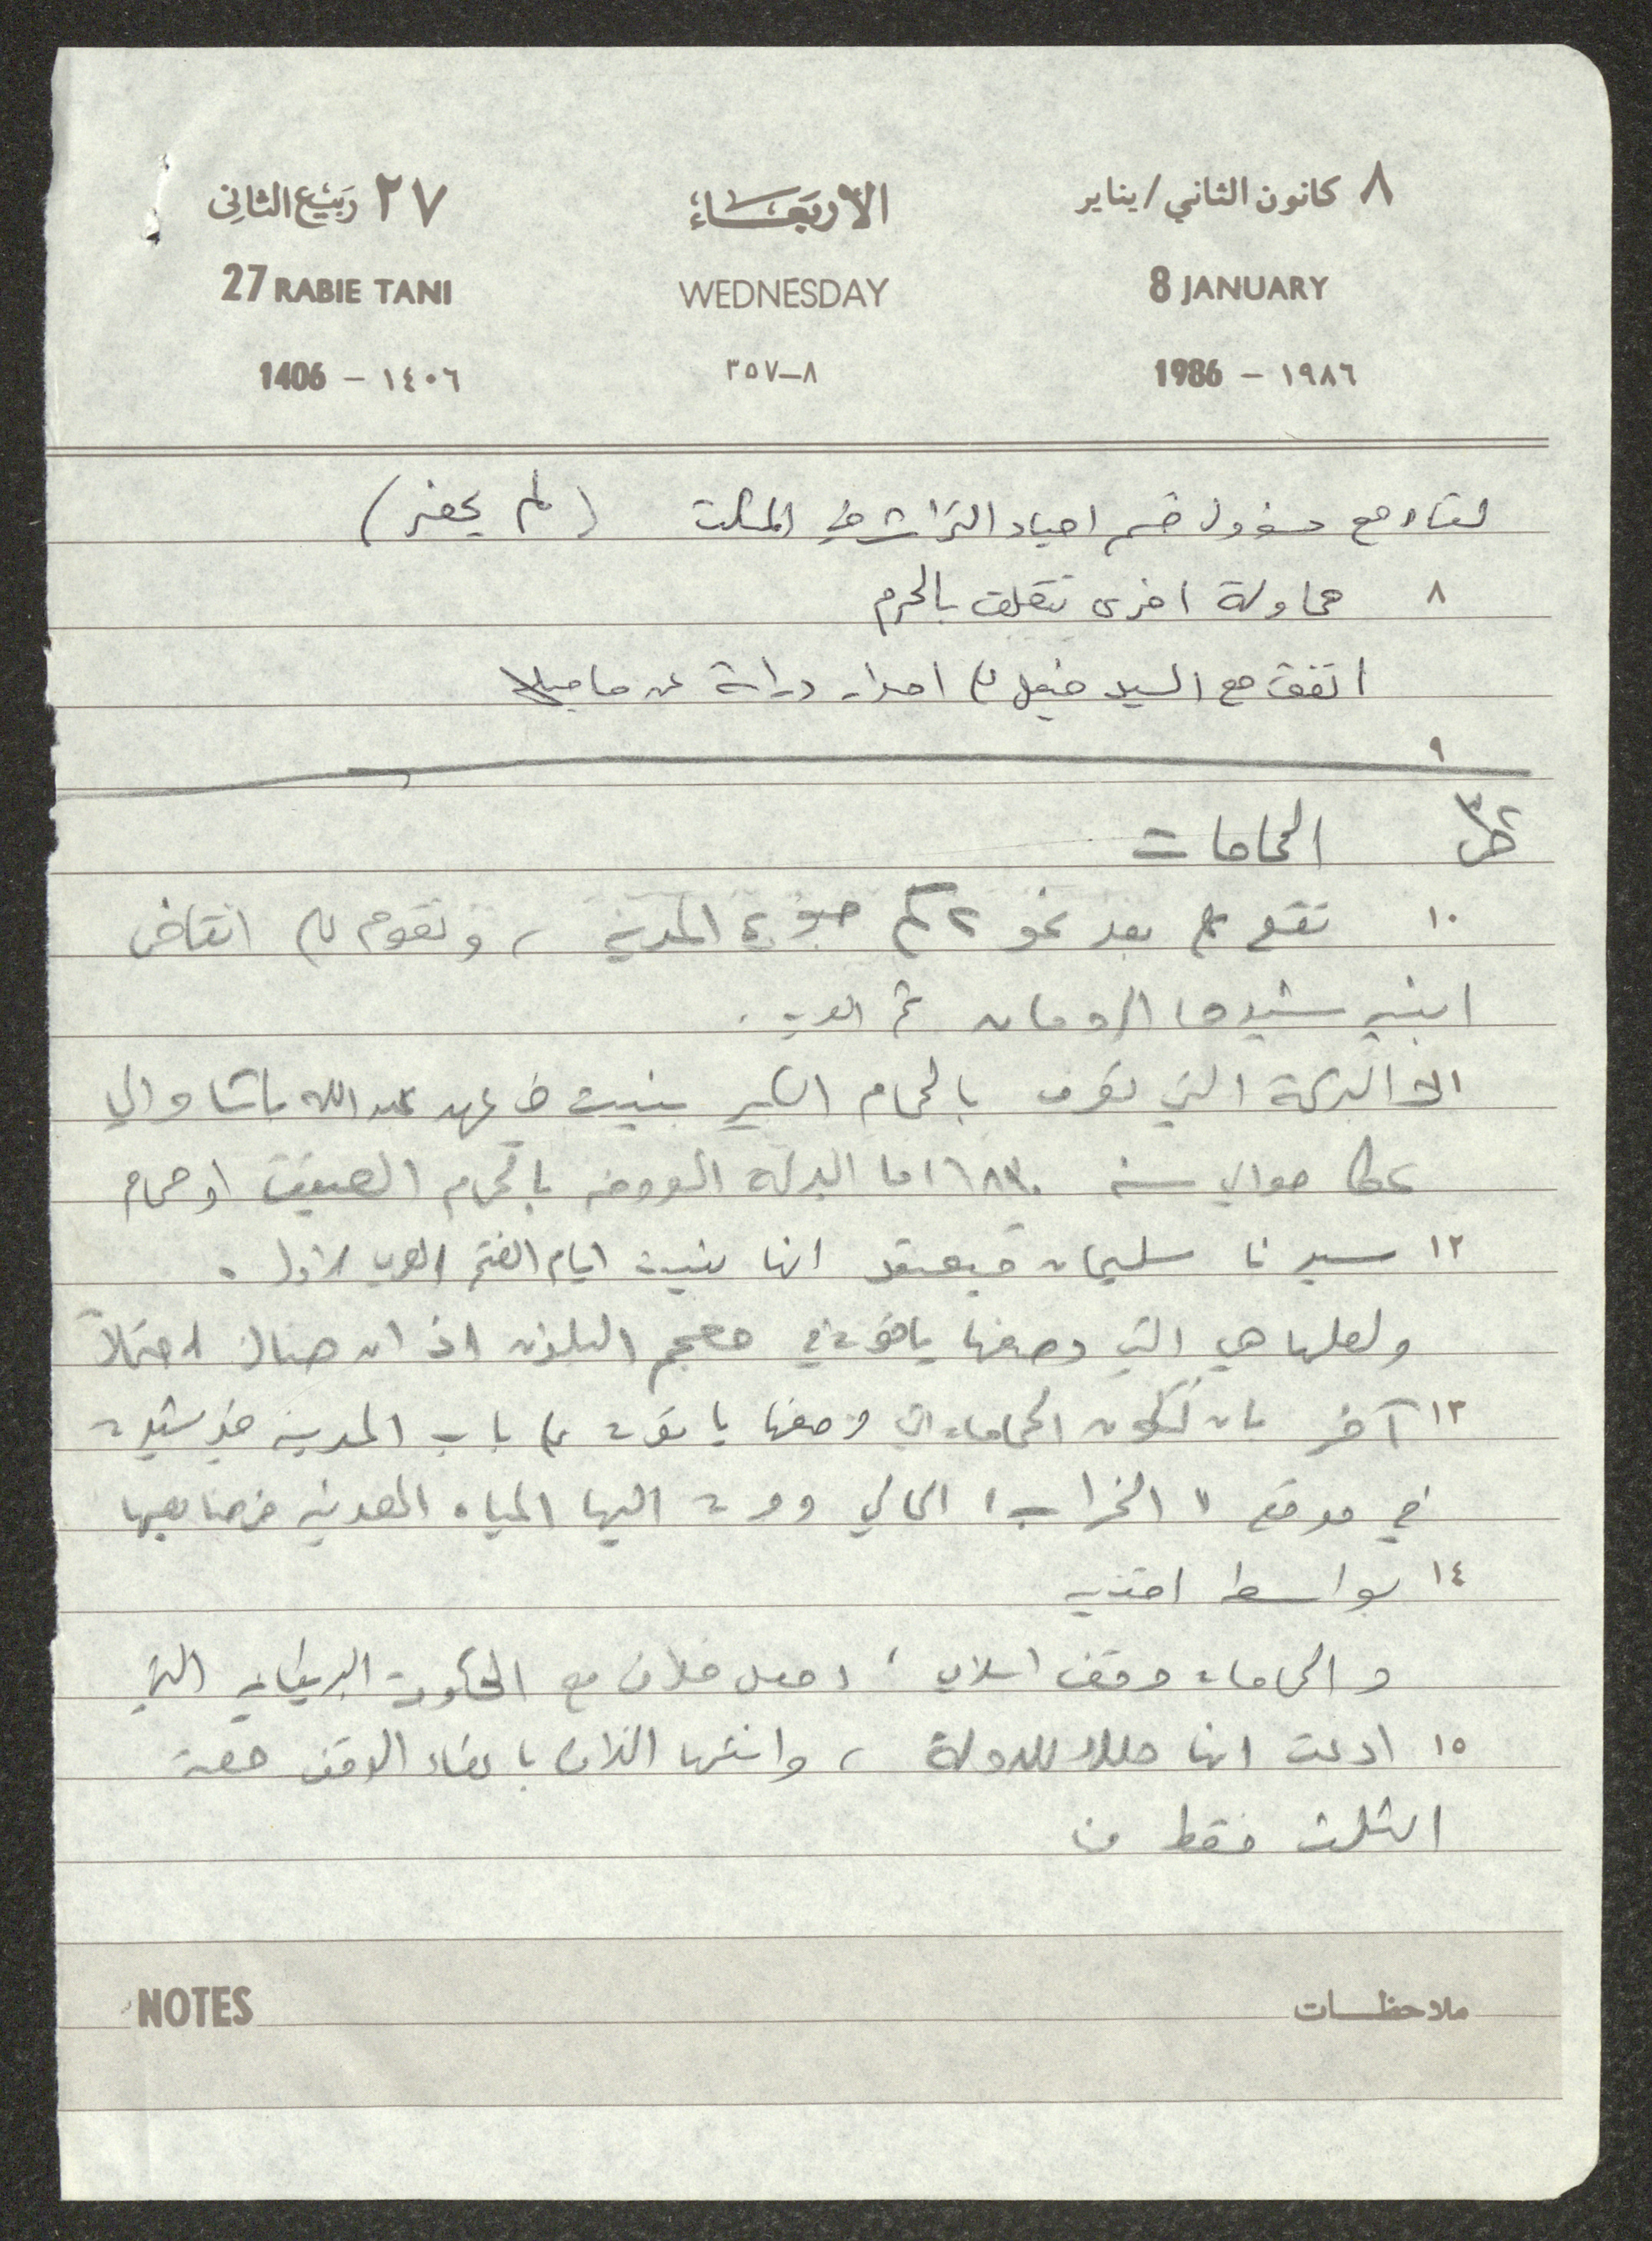 ٨ كانون الثاني/يناير الأربعاء ٢٧ ربيع الثاني
8 JANUARY WEDNESDAY 27 RABIE TANI
1986 - ١٩٨٦ ٨-٣٥٧ 1406 - ١٤٠٦
لقاء مع مسؤول قسم احياء التراث في (لم يحضر)
٨ محاولة اخرى تتعلق بالحرم
اتفقت مع السيد اعداد دراسة عن
٩
الحمامات
١٠ تقع بعد نحو ٢ كم المدينة ، وتقوم على انقاض
ابنيه شيدها الرومان ثم العرب .
البركة التي تعرف بالحمام الكبير بنيت في عهد عبد الله باشا والي
عكا حوالي سنه ١٨٣٠ اما البركة المعروفه بالحمام العتيق او حمام
١٢ سيدنا سليمان فيعتقد انها بنيت ايام الفتح العربي الاول .
ولعلها هي التي وصفها ياقوت في معجم البلدان اذ ان هناك احتمالاً
١٣ آخر بان تكون الحمامات التي وصفها ياقوت على باب المدينه قد شيدت
في موقع "الخراب" الحالي وجرت اليها المياه المعدنيه من منابعها
١٤ بواسطة اقنيه
والحمامات وقف اسلامي ، وحصل خلاف مع الحكومة البريطانيه التي
١٥ ادعت انها ملك للدولة ، وانتهى الخلاف باعطاء الوقف حصة
الثلث فقط من
NOTES ملاحظات